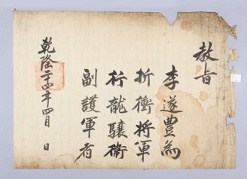 敎旨
李遂豊爲
折衝將軍
行龍驤衛
副護軍者
乾隆二十四年四月 日